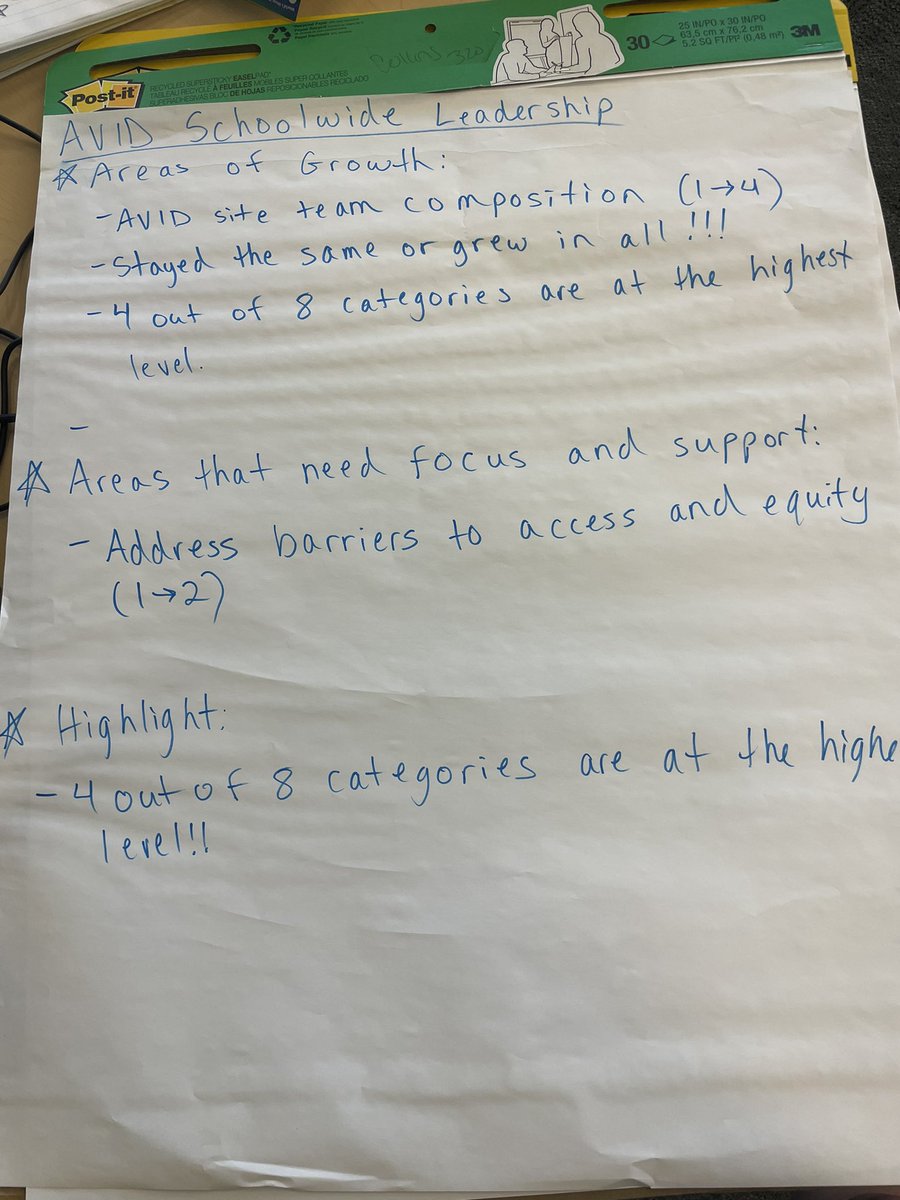 Post-it
RECYCLED SUPERSTICKY EASELPAD
TABLEAU RECYCLÉ À FEUILLES MOBILES SUPER COLLANTES
SUPERADHESIVAS BLOC DE HOJAS REPOSICIONABLES RECICLADO
30
25 IN/PO x 30 IN/PO
63,5 cm x 76,2 cm
5.2 SQ FT/PP² (0,48 m²)
3M
AVID Schoolwide Leadership
☆ Areas of Growth:
- AVID site team composition (1→4)
- Stayed the same or grew in all!!!
- 4 out of 8 categories are at the highest
level.
-
☆ Areas that need focus and support:
- Address barriers to access and equity
(1→2)
☆ Highlight:
- 4 out of 8 categories are at the highe
level!!